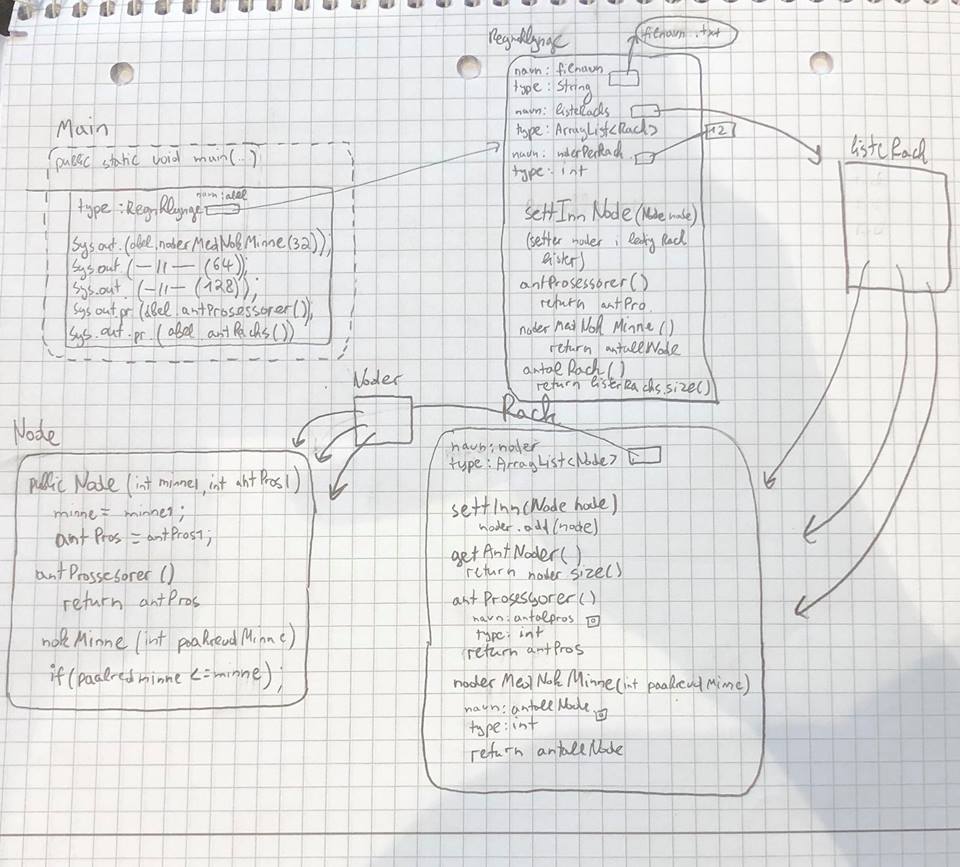 Main
public static void main(..)
navn: abel
type: RegnKlynge
Sys out.(abel.noderMedNokMinne(32));
Sys.out.(—11— (64));
Sys.out. (—11— (128));
Sys out.pr (abel.antProsessorer());
Sys.out.pr. (abel antRachs())
RegneKlynge
filnavn.txt
navn: filnavn
type: String
navn: listeRachs
type: ArrayList<Rach>
navn: nderPerRach
12
type: int
settInn Node (Node node)
(setter noder i ledig Rach
lister)
antProsessorer()
return antPro.
noder Med Nok Minne ()
return antallNode
antal Rach ()
return listerRachs.size()
listeRach
Noder
Node
public Node (int minne1, int antPros1)
minne = minne1;
ant Pros = antPros1;
antProssesorer ()
return antPros
nok Minne (int paakrevd Minne)
if (paalred minne <= minne);
Rach
navn: noder
type: ArrayList<Node>
settInn(Node node)
noder.add(node)
getAntNoder()
return noder size()
antProsessorer()
navn: antalpros 0
type: int
return antPros
noder Med Nok Minne(int paakrevd Minne)
navn: antallNode 0
type: int
return antallNode